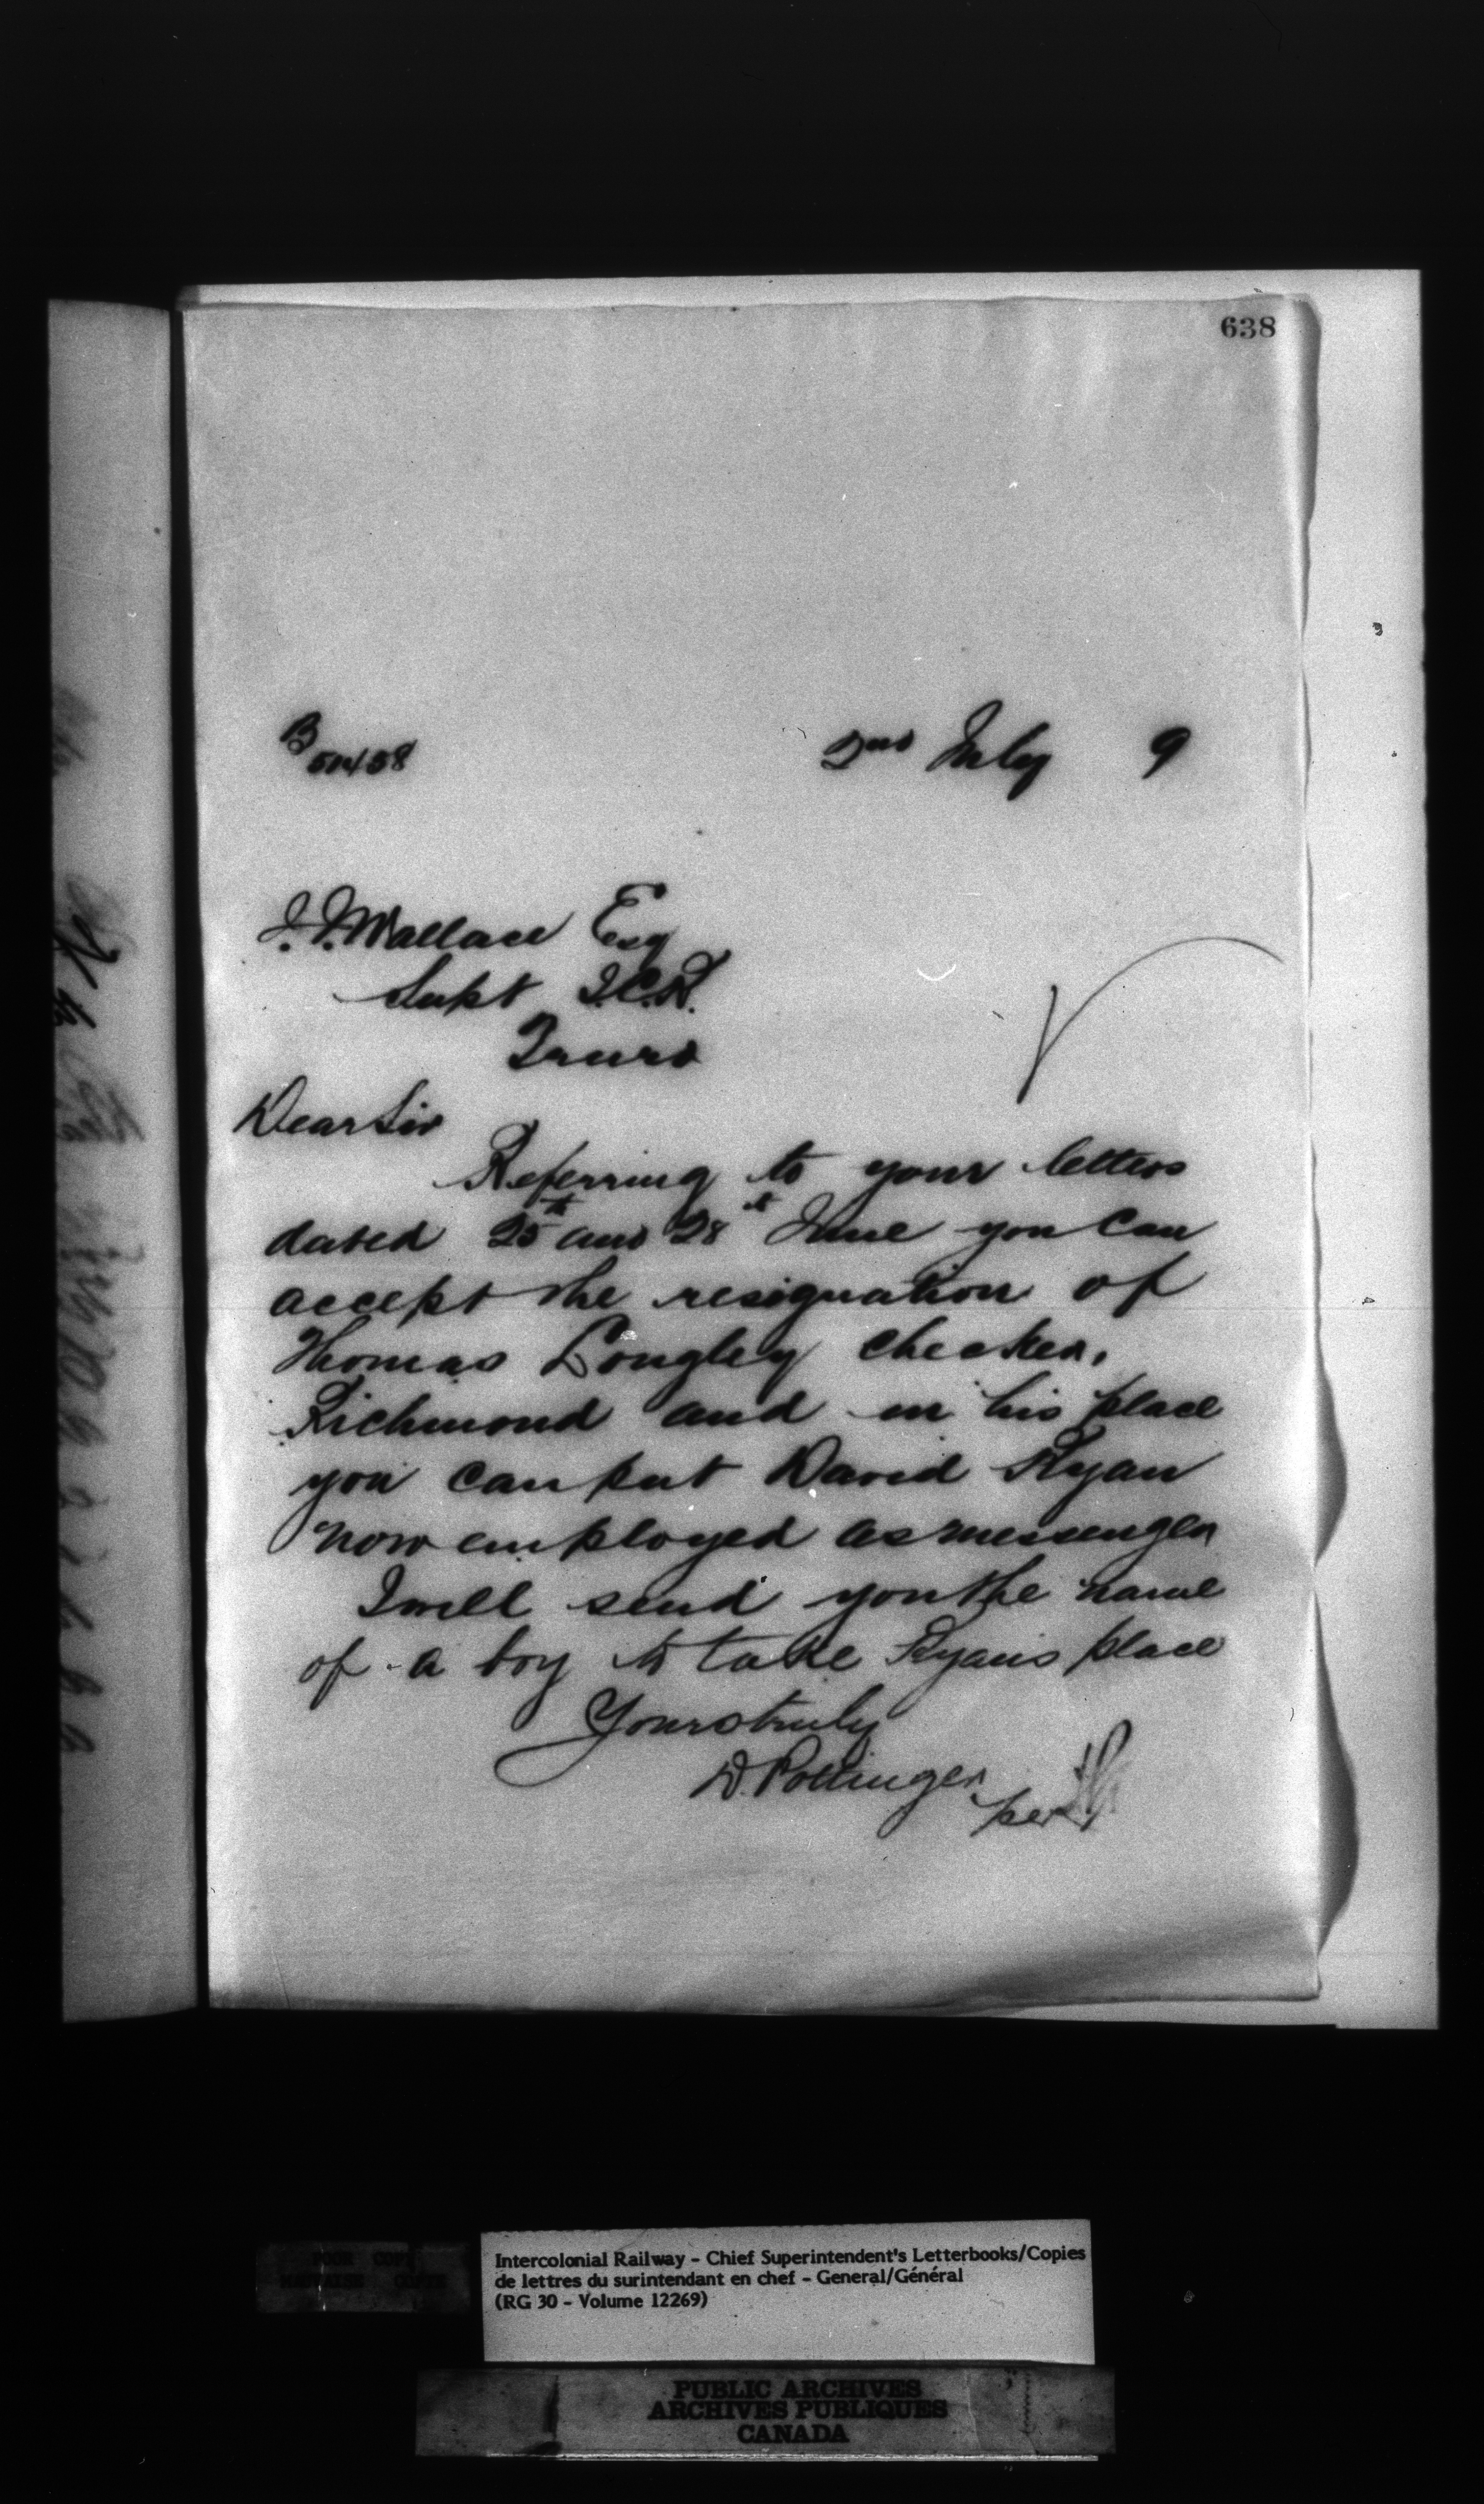 638
B
2nd July 9
J. J. Wallace Esq
Supt I.C.R.
Truro
Dear Sir
Referring to your letters
dated 25th and 28th June you can
accept the resignation of
Thomas Longley checker,
Richmond and in his place
you can put David Ryan
now employed as messenger
I will send you the name
of a boy to take Ryans place
Yours truly
D. Pottinger
per
POOR COPY
MAUVAISE COPIE
Intercolonial Railway - Chief Superintendent's Letterbooks/Copies
de lettres du surintendant en chef - General/Général
(RG 30 - Volume 12269)
PUBLIC ARCHIVES
ARCHIVES PUBLIQUES
CANADA